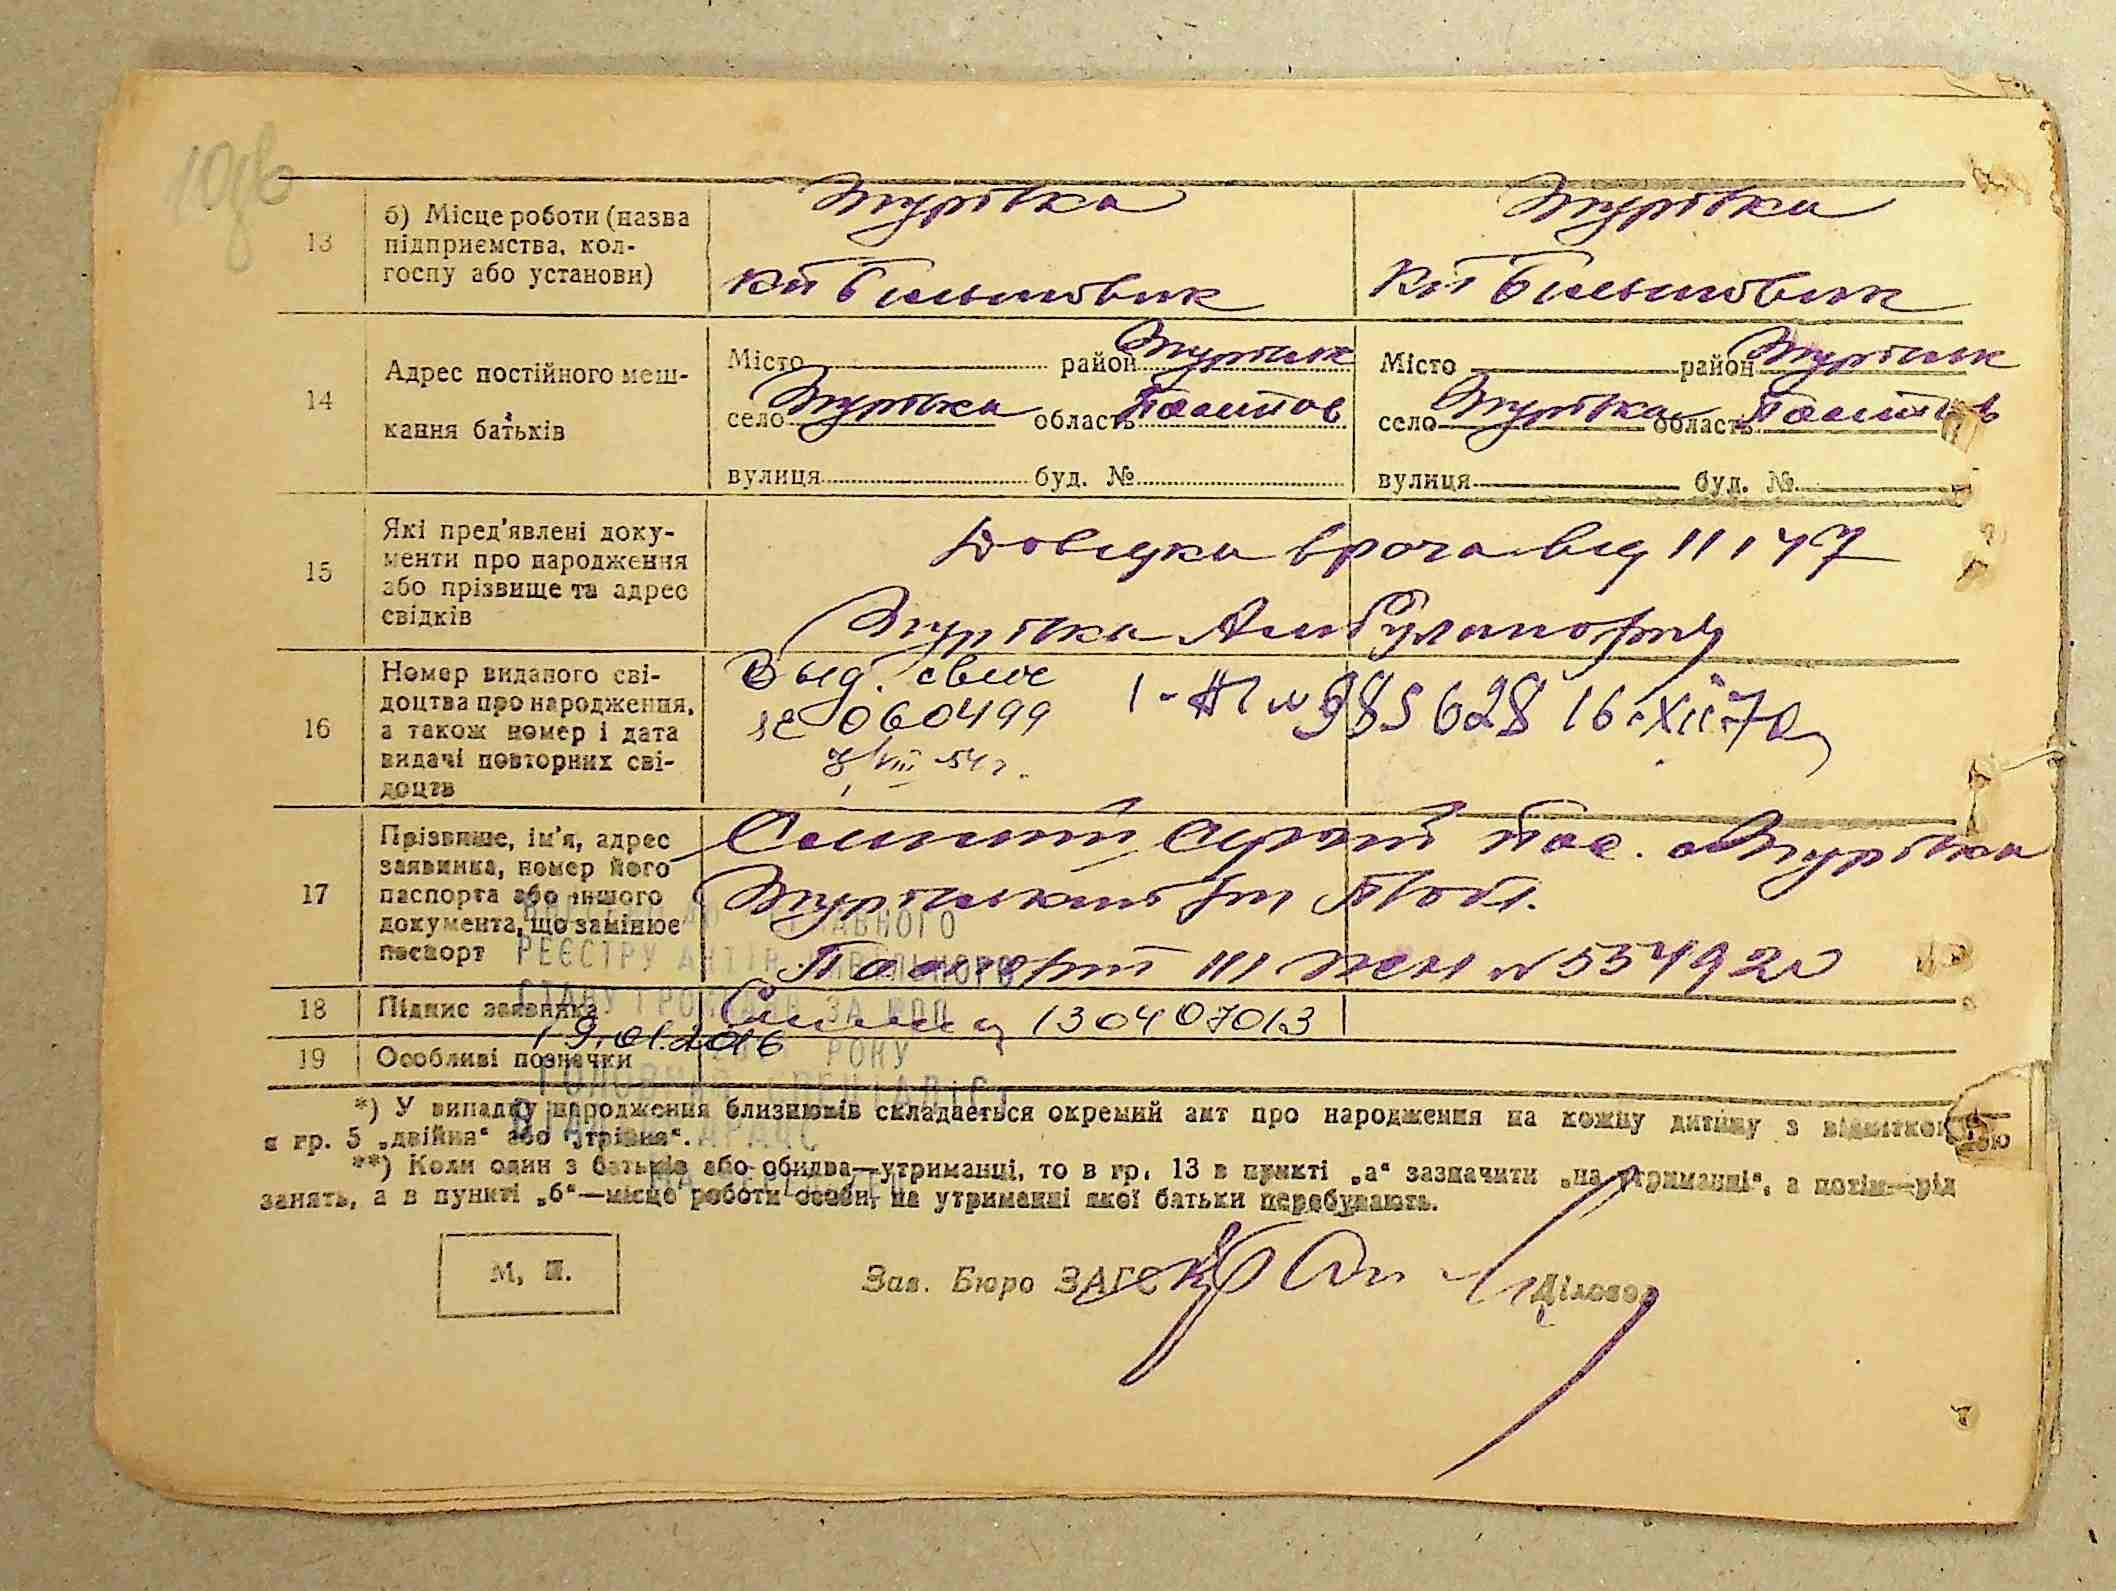 13
б) Місце роботи (назва
підприємства, кол-
госпу або установи)
Журівка
Журівка
кп Більшовик
кп Більшовик
14
Адрес постійного меш-
кання батьків
Місто район Журівськ
село Журівка область Полтав
вулиця буд. №
Місто район Журівськ
село Журівка область Полтав
вулиця буд. №
15
Які пред'явлені доку-
менти про народження
або прізвище та адрес
свідків
Довідка врача від 11 1 47
Журівка Амбулаторія
16
Номер виданого сві-
доцтва про народження,
а також номер і дата
видачі повторних сві-
доцтв
Выд.
060499
VIII 54 г.
985628 16 XII 70
17
Прізвище, ім'я, адрес
заявника, номер його
паспорта або іншого
документа, що замінює
паспорт
пос. Журівка
Паспорт III № 554920
РЕЄСТРУ АКТІВ ЦИВІЛЬНОГО
СТАНУ ГРОМАДЯН ЗА №
18
Підпис заявника
130407013
19.01.2016 РОКУ
19
Особливі позначки
ГОЛОВНИЙ СПЕЦІАЛІСТ
*) У випадку народження близнюків складається окремий акт про народження на кожну дитину з відміткою
в гр. 5 „двійня“ або „трійня“.
**) Коли один з батьків або обидва—утриманці, то в гр. 13 в пункті „а“ зазначити „на утриманні“, а потім—рід
занять, а в пункті „б“—місце роботи особи, на утриманні якої батьки перебувають.
М. П.
Зав. Бюро ЗАГС
Діловод